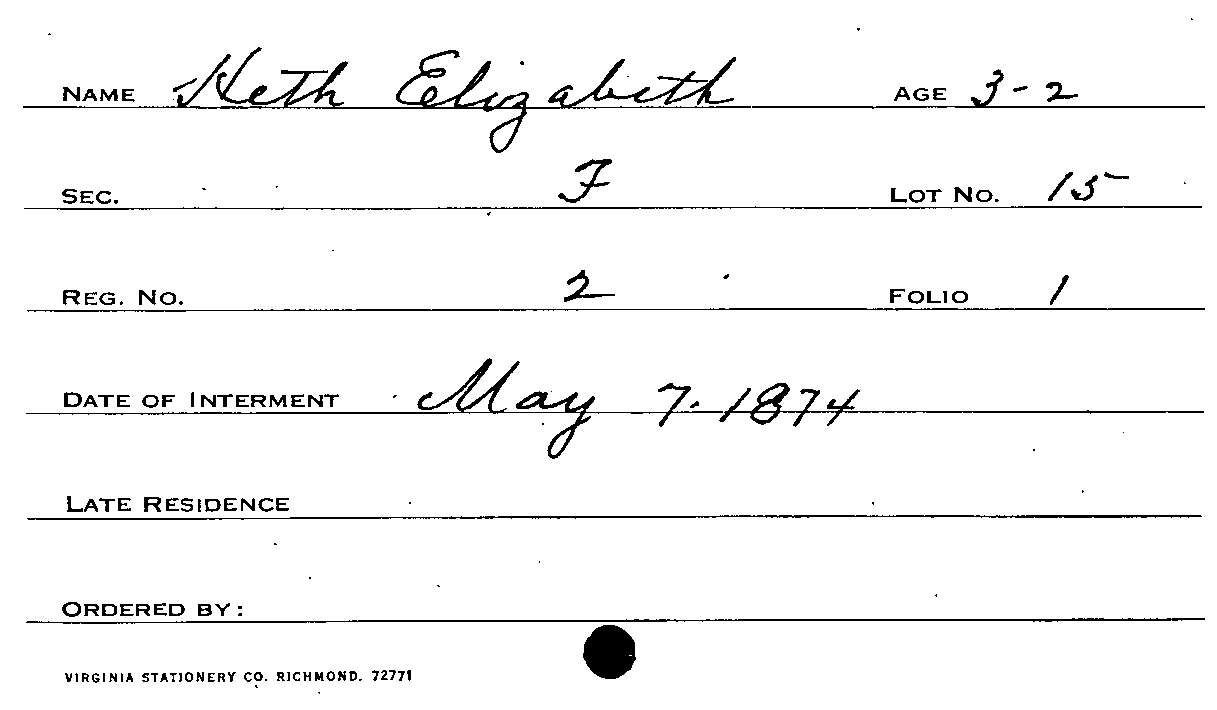 NAME Heth Elizabeth AGE 3-2
SEC. F LOT NO. 15
REG. NO. 2 FOLIO 1
DATE OF INTERMENT May 7. 1874
LATE RESIDENCE
ORDERED BY:
VIRGINIA STATIONERY CO. RICHMOND. 72771